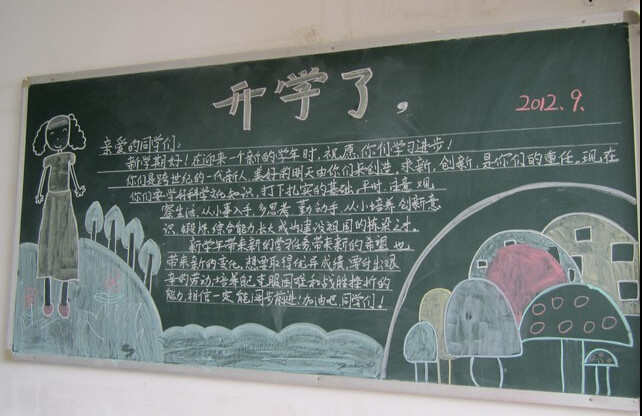 开学了,
2012.9.
亲爱的同学们:
新学期好!在迎来一个新的学年时,祝愿你们学习进步!
你们是跨世纪的一代新人,美好的明天由你们来创造。求新,创新,是你们的责任,现在
你们要学好科学文化知识,打下扎实的基础,平时注意观
察生活,从小事入手,多思考,勤动手,从小培养创新意
识,锻炼综合能力,长大成为建设祖国的栋梁之才。
新学年带来新的学习任务,带来新的希望,也
带来新的变化,想要取得优异成绩,要付出艰
辛的劳动,培养自己克服困难和战胜挫折的
能力,相信一定能同步前进!加油吧,同学们!